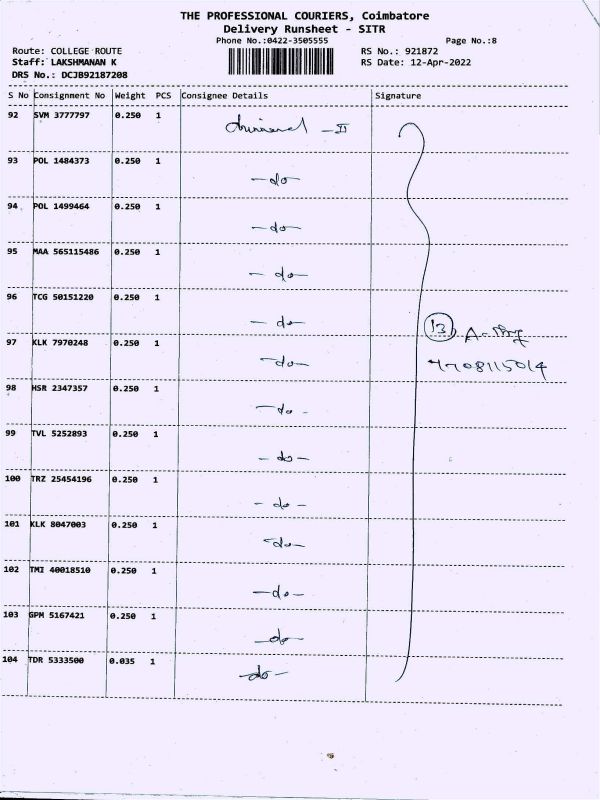 THE PROFESSIONAL COURIERS, Coimbatore
Delivery Runsheet - SITR
Phone No.:0422-3505555 Page No.:8
Route: COLLEGE ROUTE RS No.: 921872
Staff: LAKSHMANAN K RS Date: 12-Apr-2022
DRS No.: DCJB92187208
S No Consignment No Weight PCS Consignee Details Signature
92 SVM 3777797 0.250 1
- II
93 POL 1484373 0.250 1
-do-
94 POL 1499464 0.250 1
-do-
95 MAA 565115486 0.250 1
- do-
96 TCG 50151220 0.250 1
- do- 13
97 KLK 7970248 0.250 1
-do-
98 HSR 2347357 0.250 1
-do-
99 TVL 5252893 0.250 1
-do-
100 TRZ 25454196 0.250 1
-do-
101 KLK 8047003 0.250 1
-do-
102 TMI 40018510 0.250 1
-do-
103 GPM 5167421 0.250 1
-do-
104 TDR 5333500 0.035 1
-do-